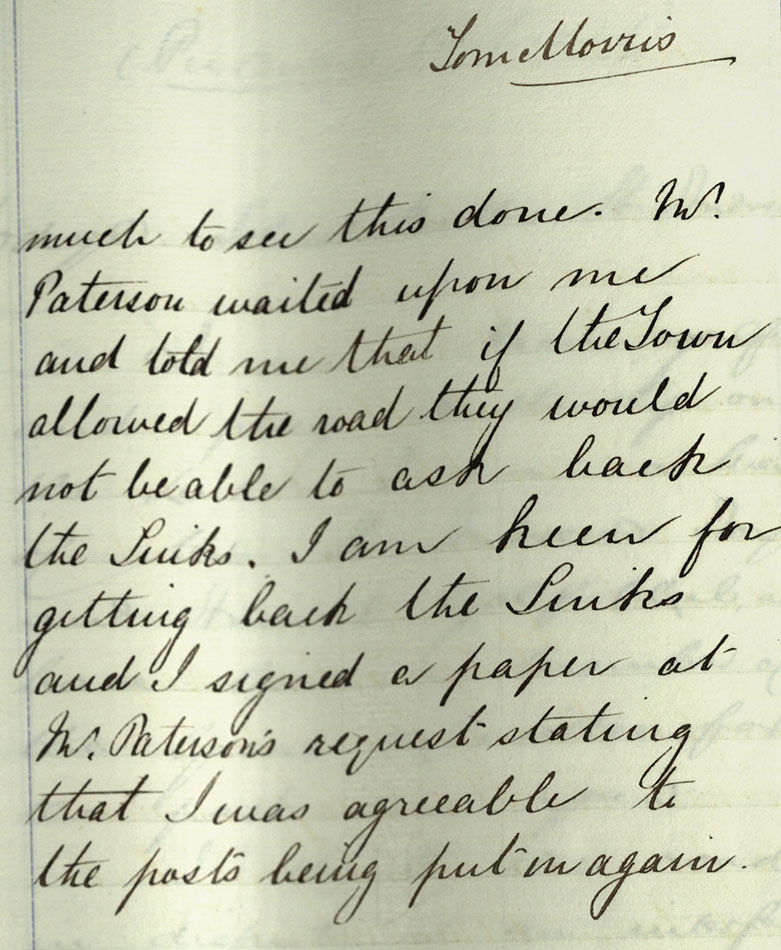 Tom Morris
much to see this done. Mr.
Paterson waited upon me
and told me that if the Town
allowed the road they would
not be able to ask back
the Links. I am keen for
getting back the Links
and I signed a paper at
Mr. Paterson's request stating
that I was agreeable to
the posts being put in again.